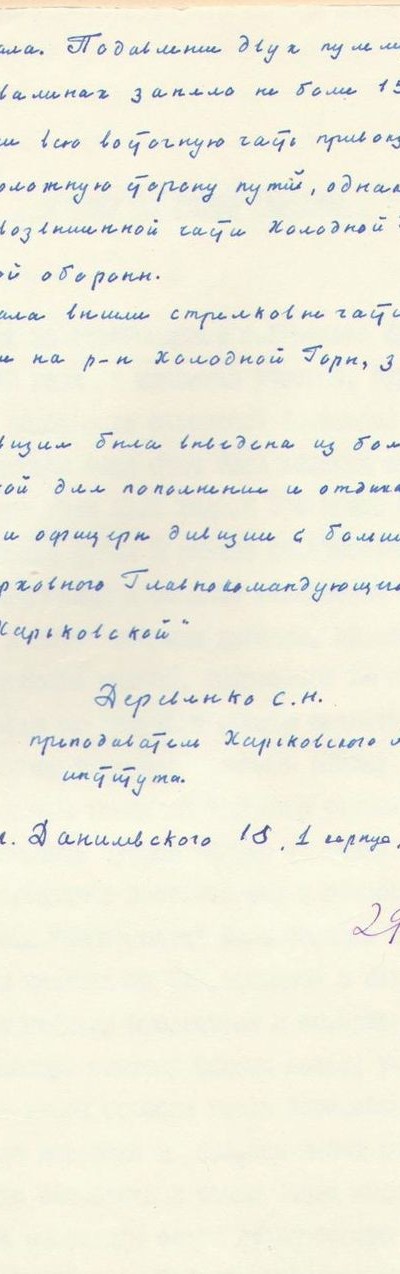 ала. Подавление двух пулем
валинах заняло не более 15
и всю восточную часть привокз
оложную сторону путей, однак
возвышенной части Холодной
ой обороны.
ала вышли стрелковые части
е на р-н Холодной Горы, з
визия была выведена из бое
кой для пополнения и отдыха
и офицеры дивизии с больш
рховного Главнокомандующего
Харьковской"
Деревянко С.Н.
преподаватель Харьковского
института.
л. Данилевского 18, 1 корпус,
29